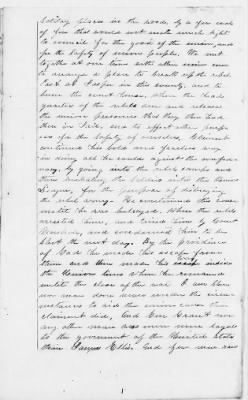 solitary places in the woods, by a few coals
of fire that would not make much light
to council for the good of the union, and
for the safety of union people. We met
together at one time with other union men
to arrange a plan to break up the rebel
Post at Jasper in this county, and to
burn the court house, when the head
quarters of the rebels then and release
the union prisoners that they then had
there in Jail, and to effect other purpo
ses for the safety of ourselves. Claimant
continued his bold and fearless way
in doing all he could against the confeder
acy, by going into the rebel camps and
there the soldiers into the Union
League, for the purpose of destroying
the rebel army. He continued this cause
until he was betrayed, when the rebels
arrested him, and tried him by Court
Martial, and condemned him to be
shot the next day. By the providence
of God he made his escape from
them and then made his escape inside
the Union lines when he remained
until the close of the war. I never knew
nor man done more under the circum
stances to aid the union cause than
claimant did, and Gen Grant nor
any other man was ever more loyal
to the government of the United States
than Ellis. And few men ran